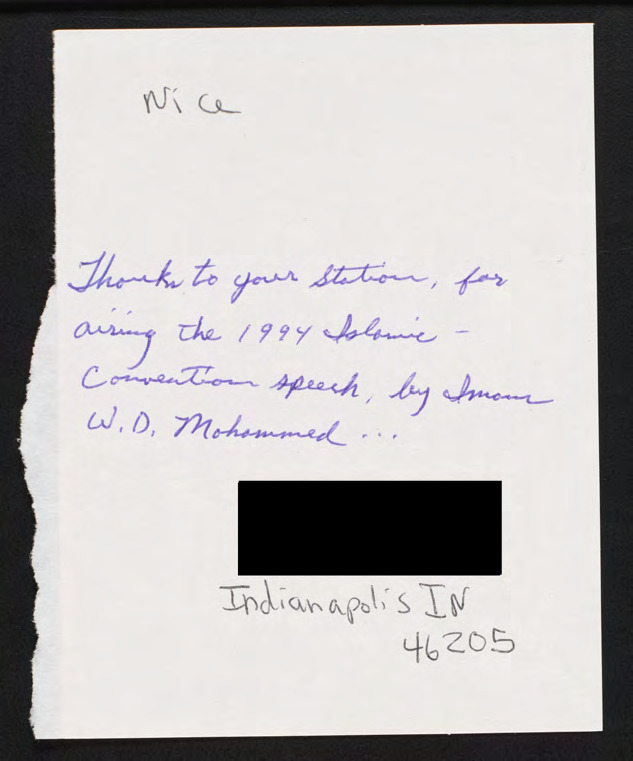 Nice
Thanks to your Station, for
airing the 1994 Islamic -
Convention speech, by Imam
W.D. Mohammed ...
Indianapolis IN
46205